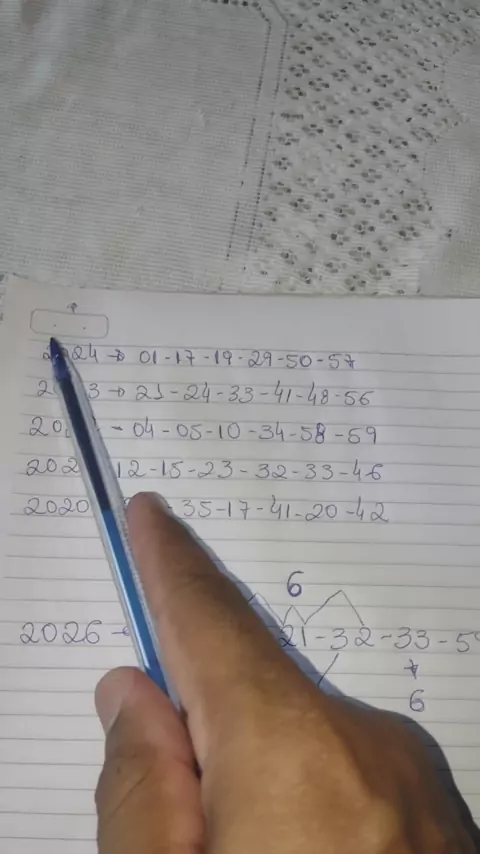 2024 → 01-17-19-29-50-57
3 → 21-24-33-41-48-56
- 04-05-10-34-58-59
12-15-23-32-33-46
2020 - 35-17-41-20-42
6
2026 → 21-32-33-59
6